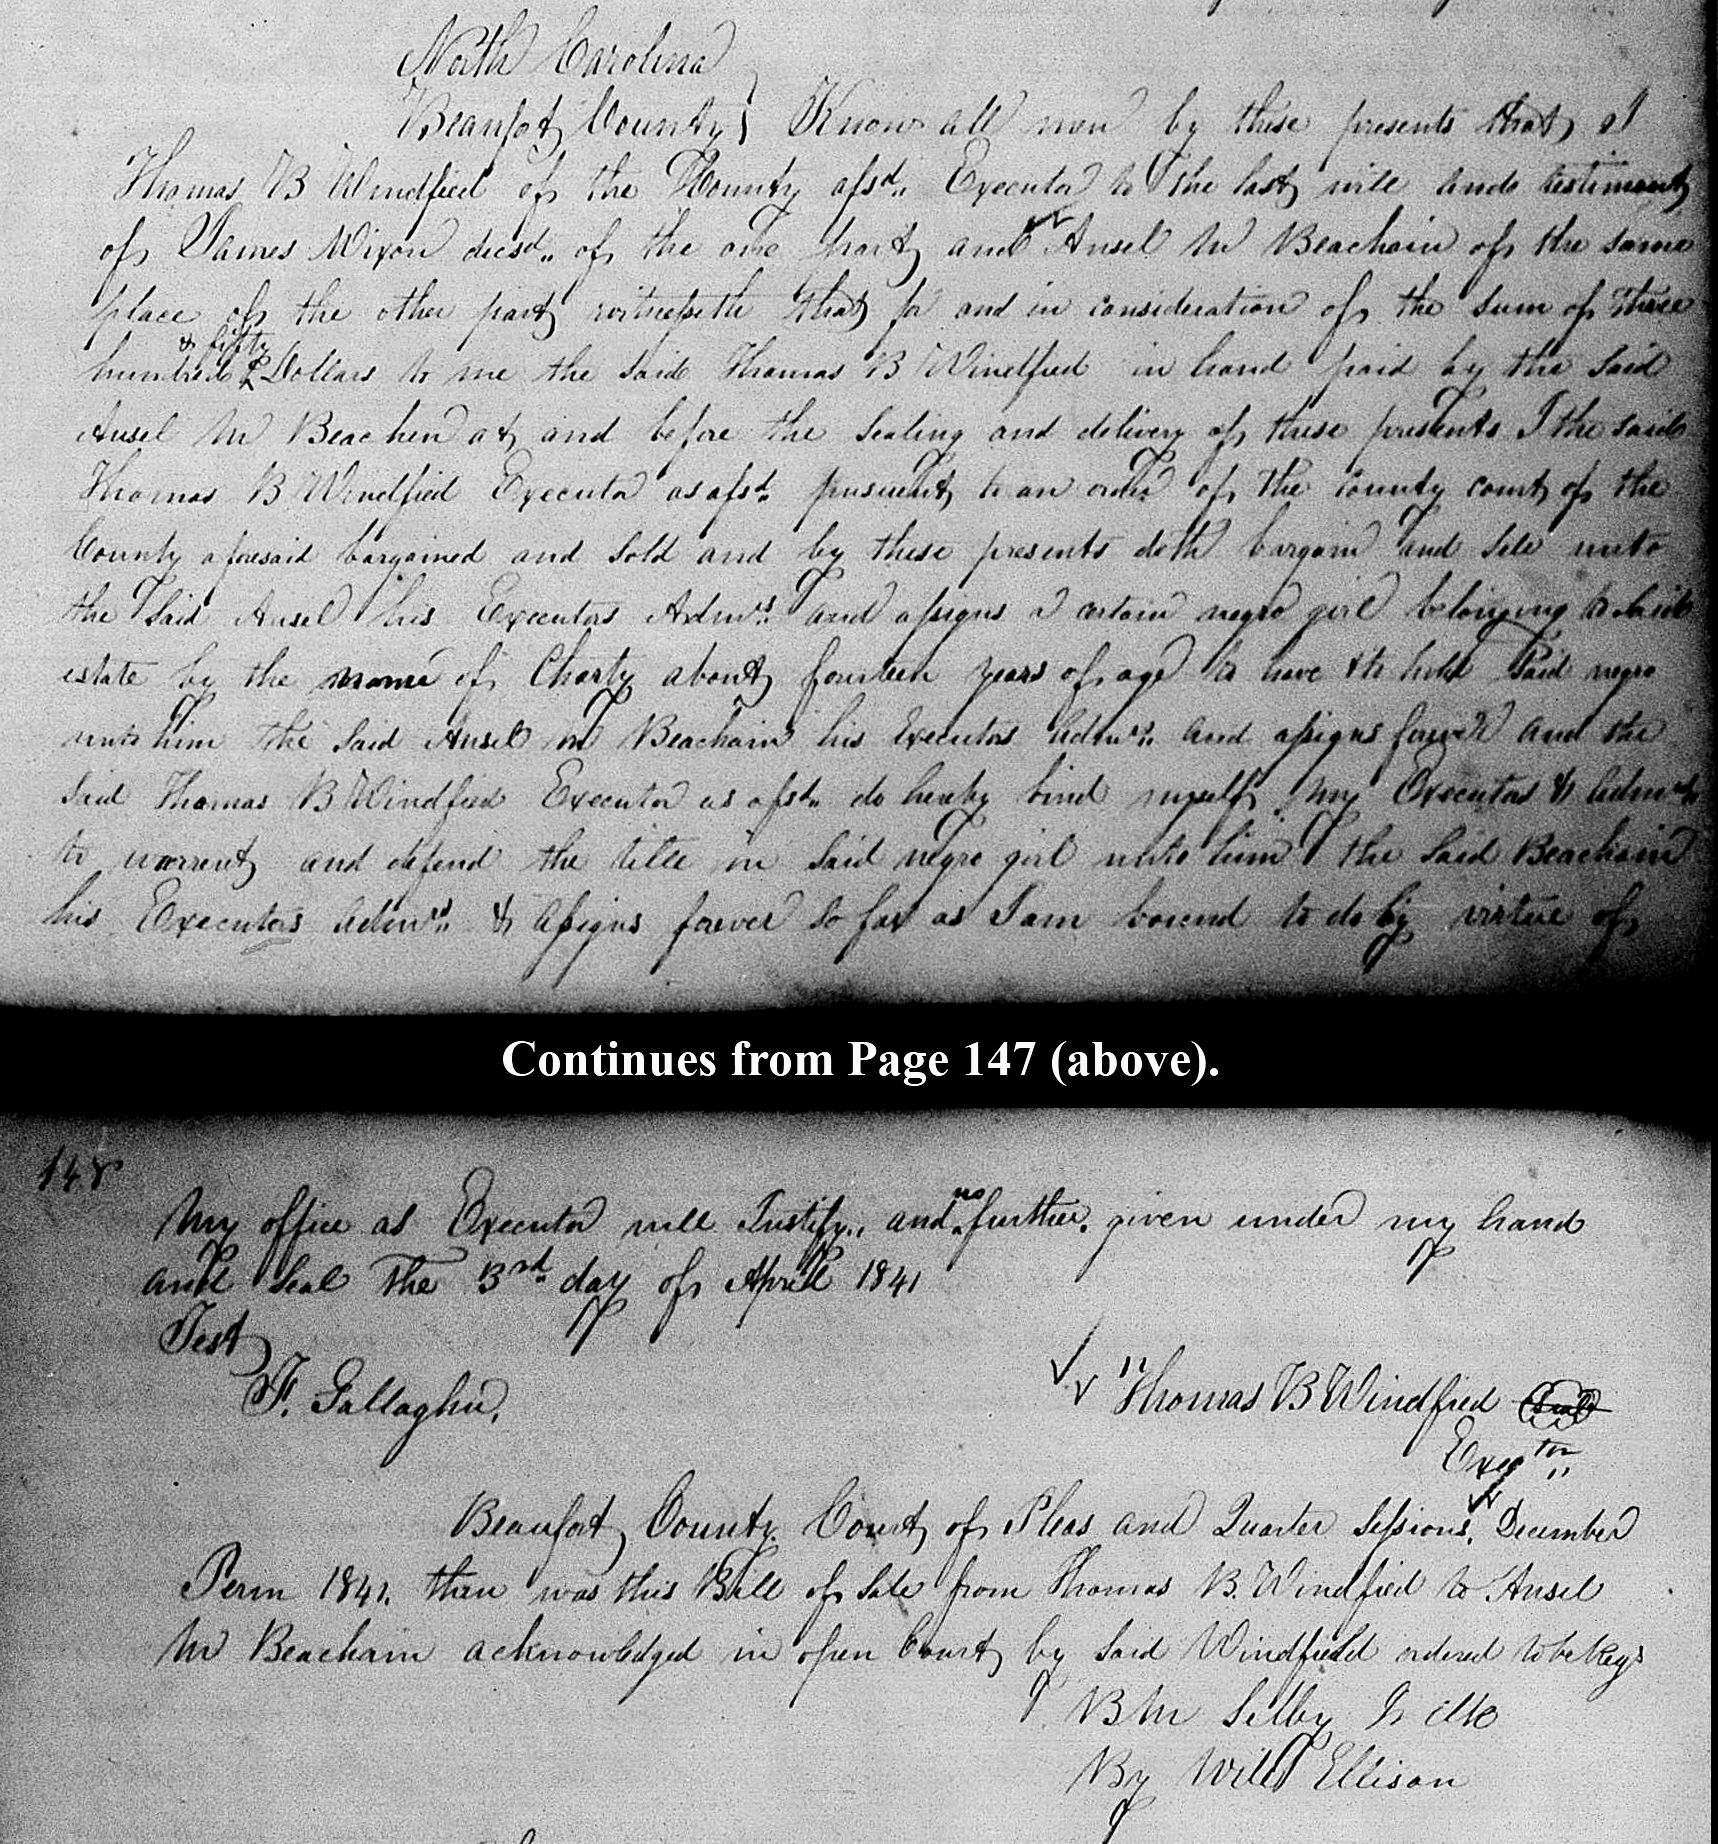 North Carolina
Beaufort County } Know all men by these presents that I
Thomas B Windfied of the County afsd.. Executor to the last will and testiment
of James Nixon decsd.. of the one part and Ansel W Beacham of the same
place of the other part witnesseth that for and in consideration of the sum of three
& fifty
hundred Dollars to me the said Thomas B Windfied in hand paid by the said
Ansel W Beachen at and before the sealing and delivery of these presents I the said
Thomas B Windfied Executor as afsd.. pursuent to an order of the County court of the
County aforesaid bargained and sold and by these presents doth bargain and sele unto
the said Ansel his Executors Admrs.. and assigns a certain negro girl belonging to said
estate by the name of Charty about fourteen years of age to have & to hold said negro
unto him the said Ansel W Beacham his Executors Admrs.. and assigns forever and the
said Thomas B Windfied Executor as afsd.. do hereby bind myself my Executors & Admrs..
to warrent and defend the title in said negro girl unto him the said Beacham
his Executors Admrs.. & assigns forever so far as I am bound to do by virtue of
Continues from Page 147 (above).
148
my office as Executor will Justify.. and no further. given under my hand
and seal the 3rd.. day of April 1841
Test
F. Gallagher.
Thomas B Windfied (Seal)
Exectr..
Beaufort County. Court of Pleas and Quarter Sessions. December
Term 1841. then was this Bill of sale from Thomas B. Windfied to Ansel
W Beacham acknowledged in open Court by said Windfield ordered to be Regs
B M Selby Clk
By Will Ellison